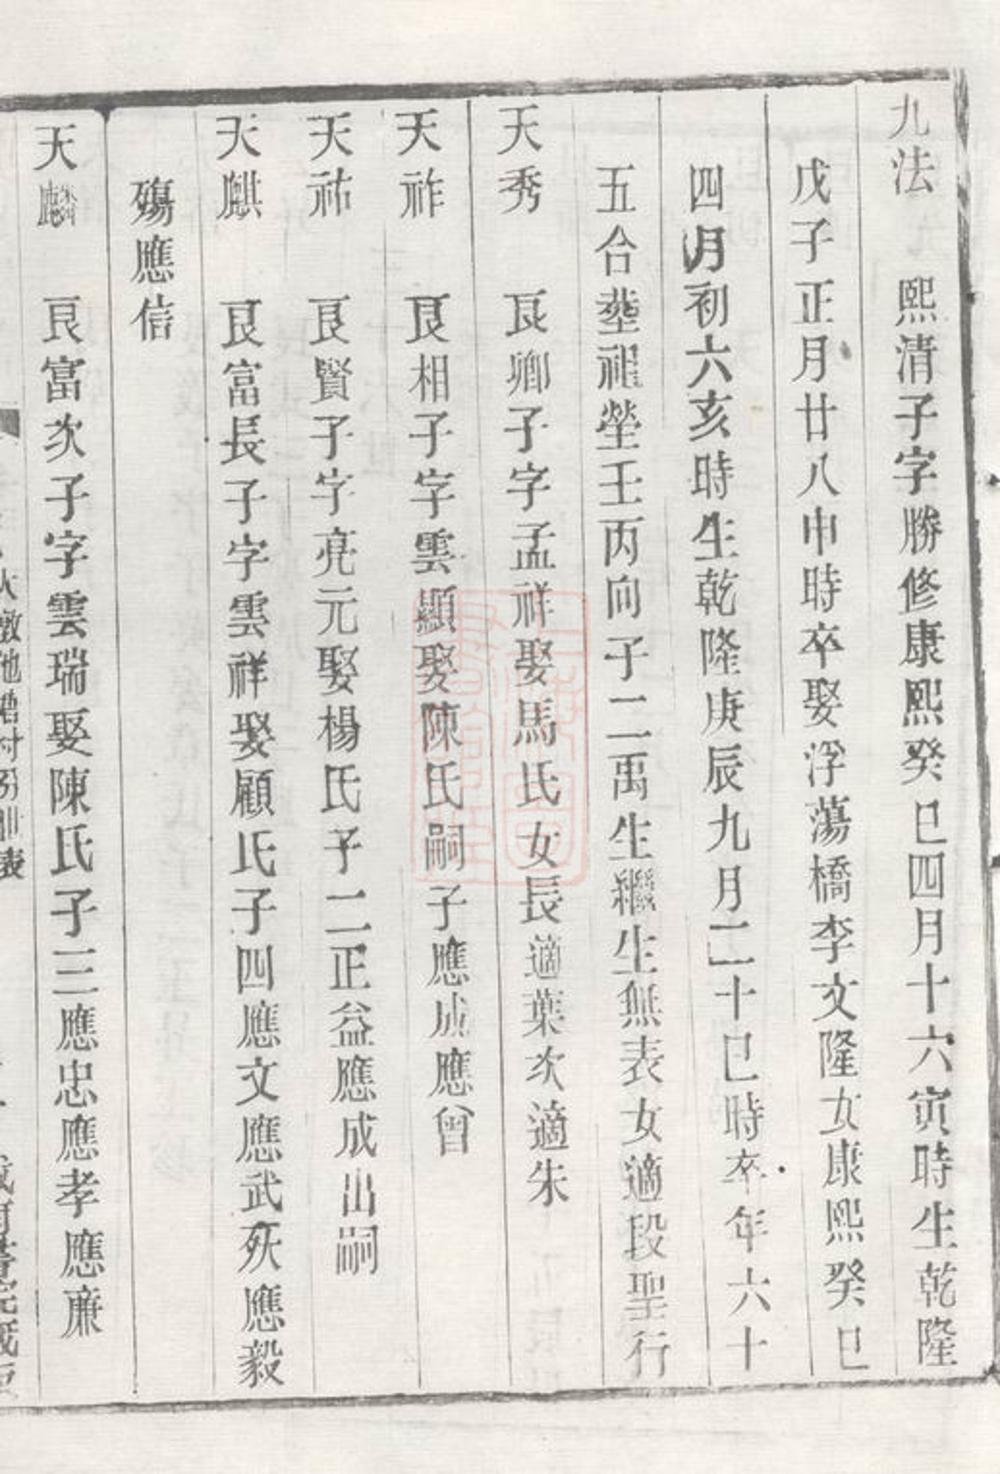 九法　熙清子字勝修康熙癸巳四月十六寅時生乾隆
戊子正月廿八申時卒娶浮蕩橋李文隆女康熙癸巳
四月初六亥時生乾隆庚辰九月二十巳時卒年六十
五合塟祖塋壬丙向子二禹生繼生無表女適段聖行
天秀　良卿子字孟祥娶馬氏女長適葉次適朱
天祚　良相子字雲顯娶陳氏嗣子應成應曾
天祐　良賢子字亮元娶楊氏子二正益應成出嗣
天麒　良富長子字雲祥娶顧氏子四應文應武殀應毅
殤應信
天麟　良富次子字雲瑞娶陳氏子三應忠應孝應亷